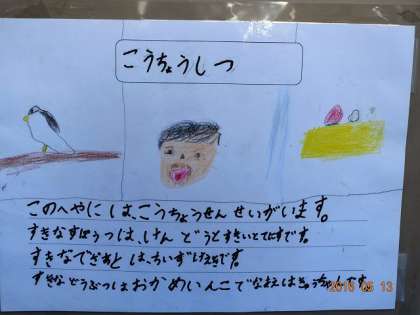 こうちょうしつ
このへやには、こうちょうせんせいがいます。
すきなすぽうつは、けんどうとすいえいです。
すきなでざあとは、ちいずけえきです。
すきなどうぶつはおかめいんこでなまえは
2016 05 13